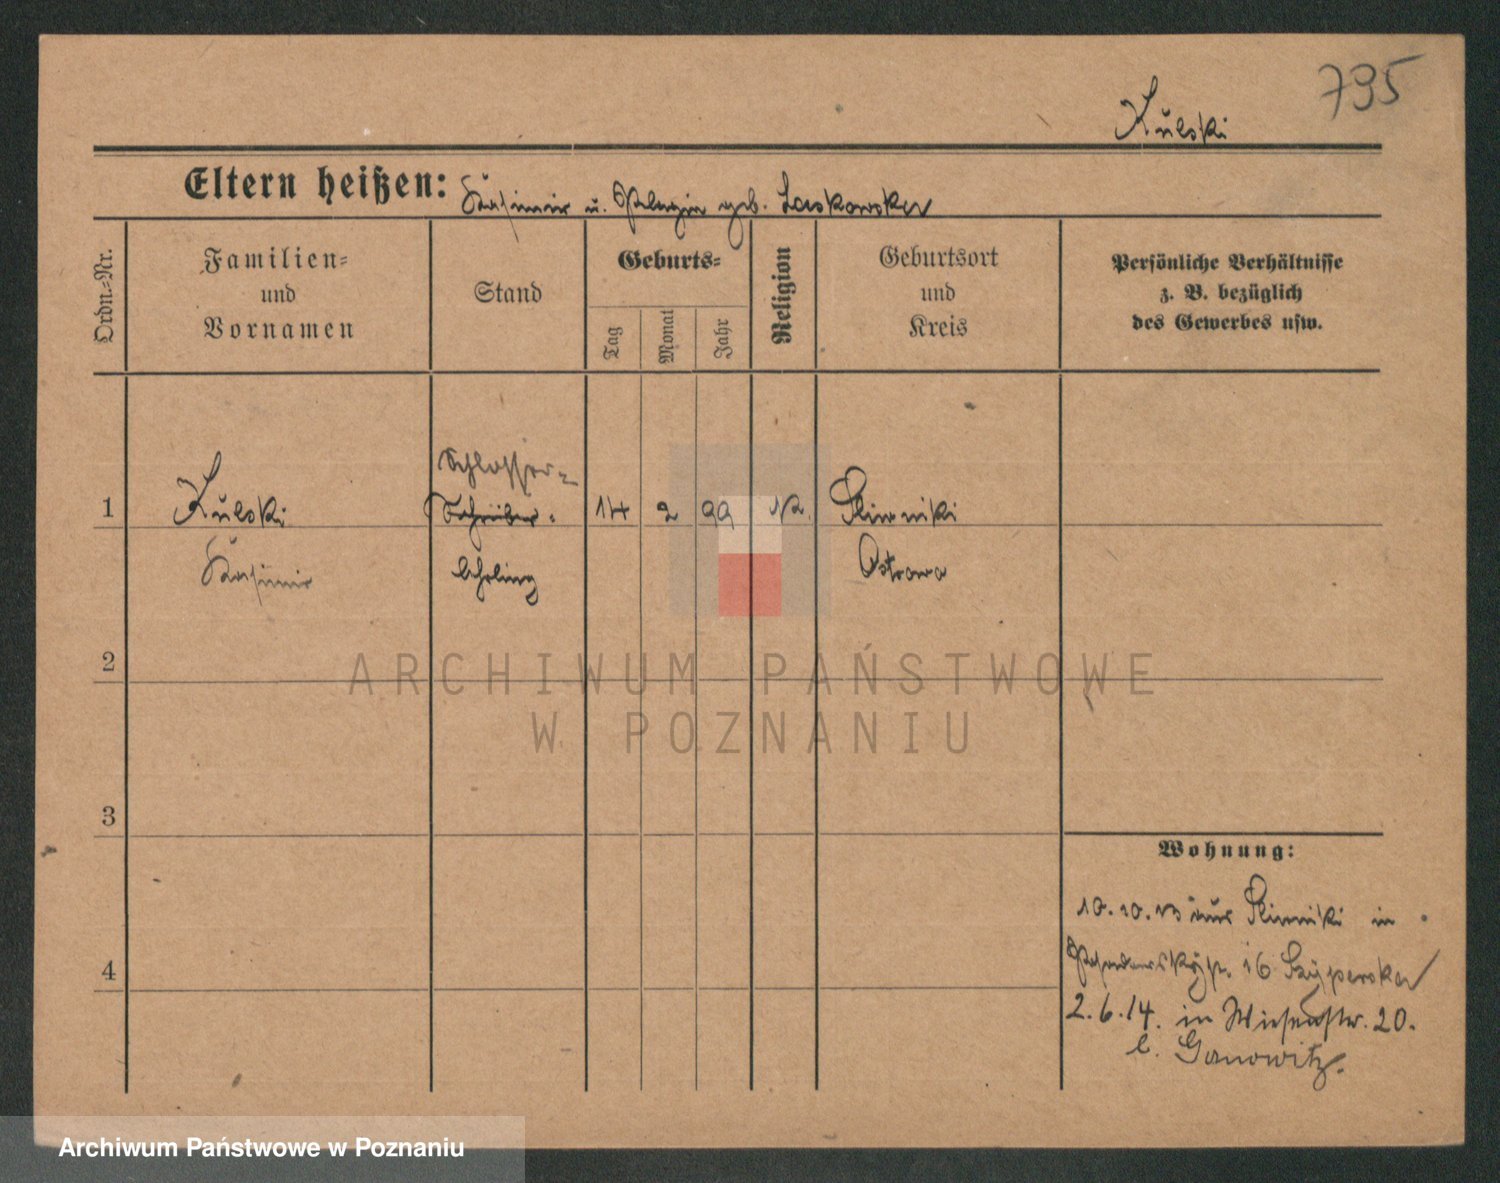 795
Kulski
Eltern heißen: Kasimir u. Pelagia geb. Laskowska
Ordn.-Nr.
Familien-
und
Vornamen
Stand
Geburts-
Tag
Monat
Jahr
Religion
Geburtsort
und
Kreis
Persönliche Verhältnisse
z. B. bezüglich
des Gewerbes usw.
Schlosser-
1 Kulski Schreiber- 14 2 99 k. Sliwniki
Kasimir lehrling Ostrowo
2
3
4
Wohnung:
10.10.13 aus Sliwniki in
16
2.6.14. in Wiesenstr. 20.
b. Ganowitz.
ARCHIWUM PAŃSTWOWE
W POZNANIU
Archiwum Państwowe w Poznaniu